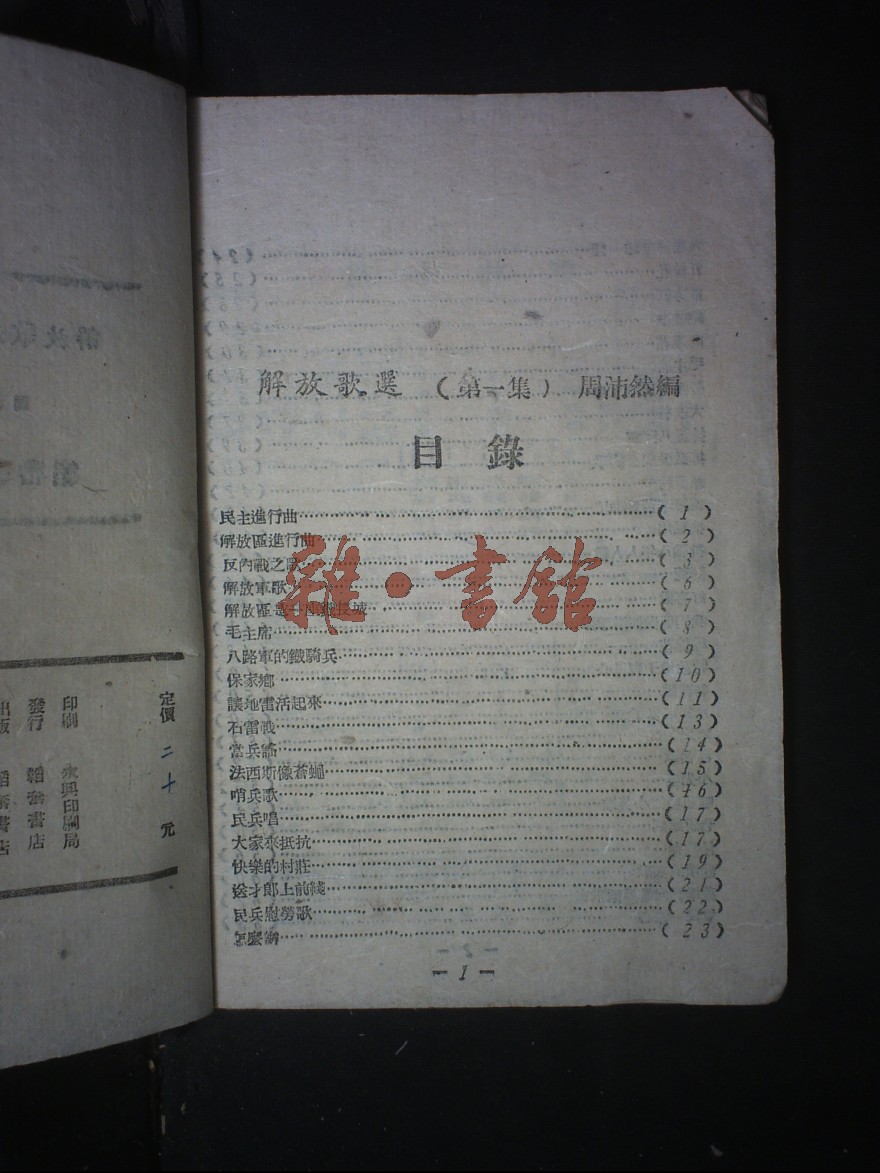 解放歌選 （第一集） 周沛然編
目錄
民主進行曲……（1）
解放區進行曲……（2）
反內戰之歌……（3）
解放軍歌……（6）
解放區……（7）
毛主席……（8）
八路軍的鐵騎兵……（9）
保家鄉……（10）
讓地雷活起來……（11）
石雷戰……（13）
當兵謠……（14）
法西斯像蒼蠅……（15）
哨兵歌……（16）
民兵唱……（17）
大家來抵抗……（17）
快樂的村莊……（19）
送才郎上前綫……（21）
民兵慰勞歌……（22）
怎麼辦……（23）
－1－
雜·書館
定價 二十元
印刷 永興印刷局
發行 韜奮書店
出版 韜奮書店